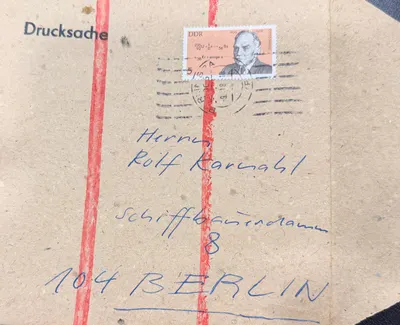 Drucksache
DDR
Herrn
Rolf Karmahl
Schiffbauerdamm
8
104 BERLIN